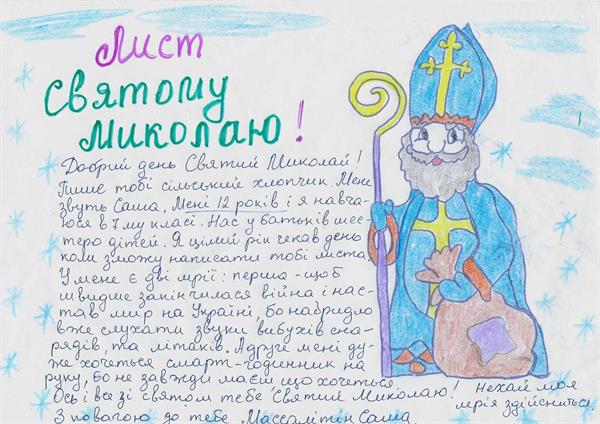 Лист
Святому
Миколаю!
Добрий день Святий Миколай!
Пише тобі сільський хлопчик. Мене
звуть Саша. Мені 12 років і я навча-
юся в 7 му класі. Нас у батьків шес-
теро дітей. Я цілий рік чекав день
коли зможу написати тобі листа
У мене є дві мрії: перша - щоб
швидше закінчилася війна і нас-
тав мир на Україні, бо набридло
вже слухати звуки вибухів сна-
рядів, та літаків. А друге мені ду-
же хочеться смарт-годинник на
руку, бо не завжди маєш що хочеться.
Ось і все зі святом тебе Святий Миколаю! Нехай моя
мрія здійсниться.
З повагою до тебе Массалітін Саша